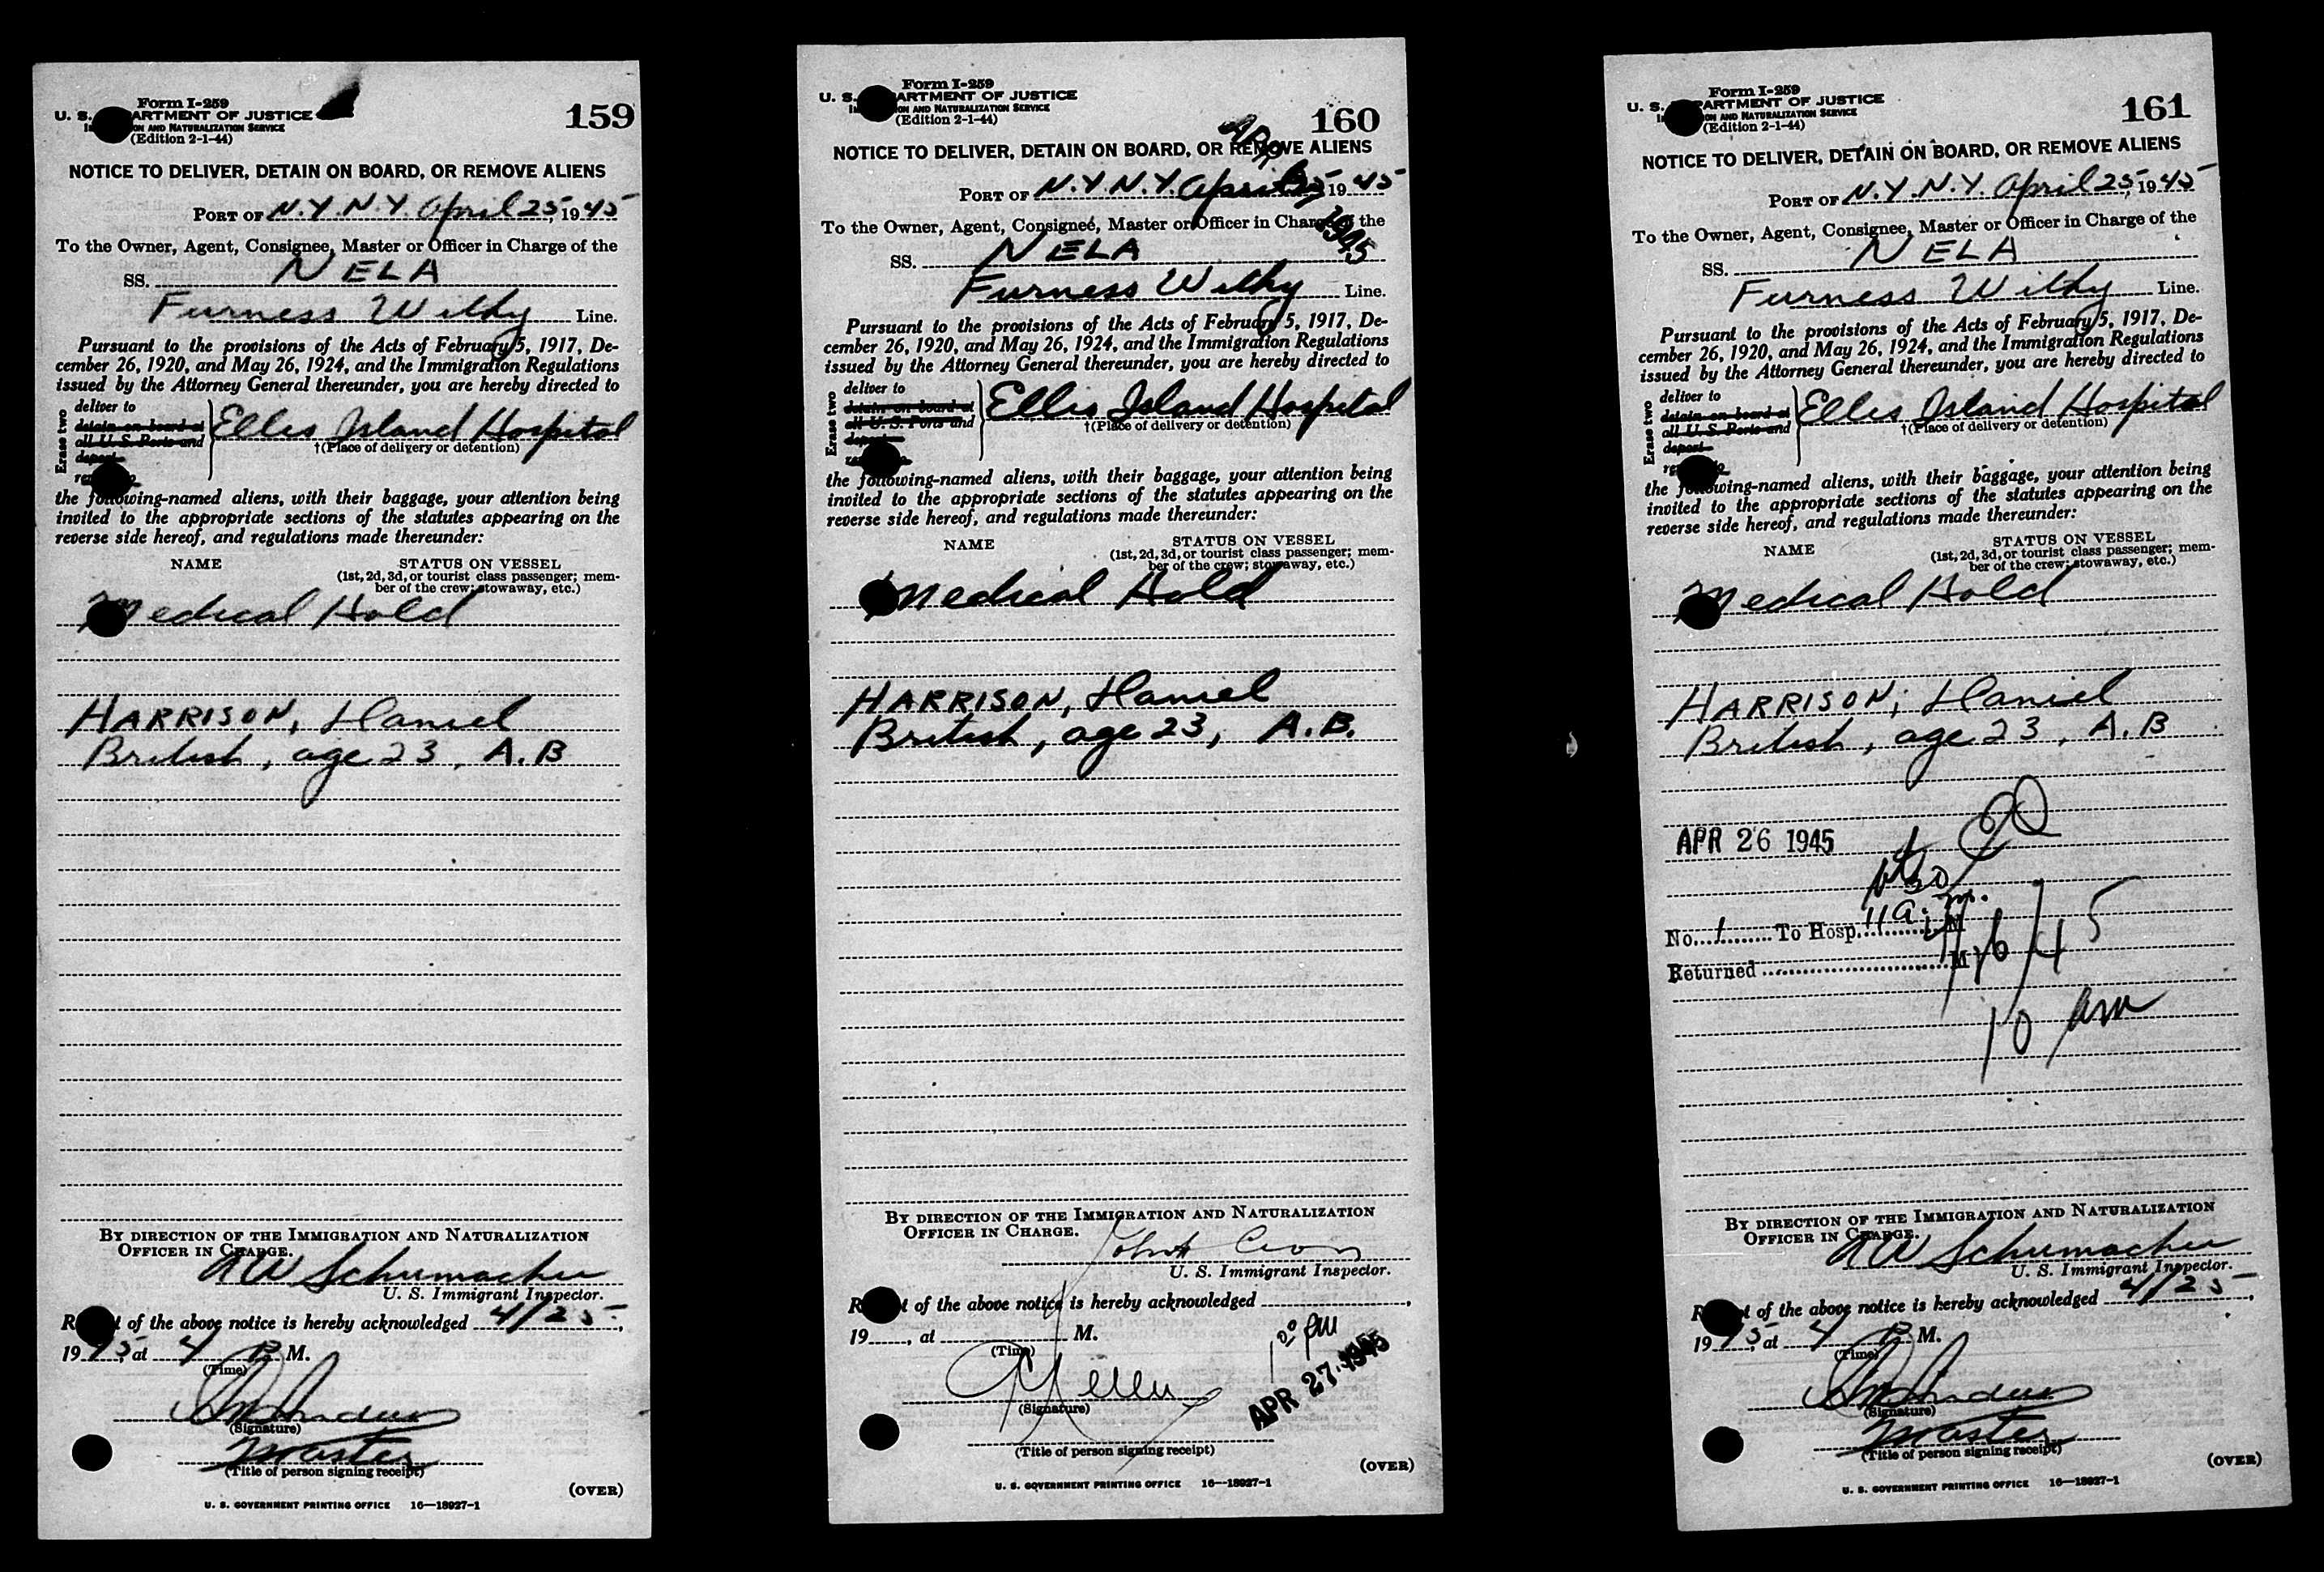 Form I-259
U. S. ARTMENT OF JUSTICE
ON AND NATURALIZATION SERVICE
(Edition 2-1-44)
159
NOTICE TO DELIVER, DETAIN ON BOARD, OR REMOVE ALIENS
PORT OF N.Y. N.Y. April 25, 1945
To the Owner, Agent, Consignee, Master or Officer in Charge of the
SS. NELA
Furness Withy Line.
Pursuant to the provisions of the Acts of February 5, 1917, De-
cember 26, 1920, and May 26, 1924, and the Immigration Regulations
issued by the Attorney General thereunder, you are hereby directed to
Erase two
deliver to
detain on board at
all U. S. Ports and
deport
Ellis Island Hospital
†(Place of delivery or detention)
the following-named aliens, with their baggage, your attention being
invited to the appropriate sections of the statutes appearing on the
reverse side hereof, and regulations made thereunder:
NAME STATUS ON VESSEL
(1st, 2d, 3d, or tourist class passenger; mem-
ber of the crew; stowaway, etc.)
Medical Hold
HARRISON, Daniel
British, age 23, A.B
BY DIRECTION OF THE IMMIGRATION AND NATURALIZATION
OFFICER IN CHARGE.
AW Schumacher
U. S. Immigrant Inspector.
R t of the above notice is hereby acknowledged 4/25,
1945, at 4 P. M.
(Time)
(Signature)
Master
(Title of person signing receipt)
(OVER)
U. S. GOVERNMENT PRINTING OFFICE 16—18927-1
Form I-259
U. S. ARTMENT OF JUSTICE
ON AND NATURALIZATION SERVICE
(Edition 2-1-44)
160
NOTICE TO DELIVER, DETAIN ON BOARD, OR REMOVE ALIENS
PORT OF N.Y. N.Y. April 25, 1945
APR 1945
To the Owner, Agent, Consigneé, Master or Officer in Charge of the
SS. NELA
Furness Withy Line.
Pursuant to the provisions of the Acts of February 5, 1917, De-
cember 26, 1920, and May 26, 1924, and the Immigration Regulations
issued by the Attorney General thereunder, you are hereby directed to
Erase two
deliver to
detain on board at
all U. S. Ports and
deport
Ellis Island Hospital
†(Place of delivery or detention)
the following-named aliens, with their baggage, your attention being
invited to the appropriate sections of the statutes appearing on the
reverse side hereof, and regulations made thereunder:
NAME STATUS ON VESSEL
(1st, 2d, 3d, or tourist class passenger; mem-
ber of the crew; stowaway, etc.)
Medical Hold
HARRISON, Daniel
British, age 23, A.B.
BY DIRECTION OF THE IMMIGRATION AND NATURALIZATION
OFFICER IN CHARGE.
U. S. Immigrant Inspector.
R t of the above notice is hereby acknowledged ,
19 , at M.
(Time)
1 20 PM
APR 27 1945
(Signature)
(Title of person signing receipt)
(OVER)
U. S. GOVERNMENT PRINTING OFFICE 16—18927-1
Form I-259
U. S. PARTMENT OF JUSTICE
ON AND NATURALIZATION SERVICE
(Edition 2-1-44)
161
NOTICE TO DELIVER, DETAIN ON BOARD, OR REMOVE ALIENS
PORT OF N.Y. N.Y. April 25, 1945
To the Owner, Agent, Consignee, Master or Officer in Charge of the
SS. NELA
Furness Withy Line.
Pursuant to the provisions of the Acts of February 5, 1917, De-
cember 26, 1920, and May 26, 1924, and the Immigration Regulations
issued by the Attorney General thereunder, you are hereby directed to
Erase two
deliver to
detain on board at
all U. S. Ports and
deport
Ellis Island Hospital
†(Place of delivery or detention)
the following-named aliens, with their baggage, your attention being
invited to the appropriate sections of the statutes appearing on the
reverse side hereof, and regulations made thereunder:
NAME STATUS ON VESSEL
(1st, 2d, 3d, or tourist class passenger; mem-
ber of the crew; stowaway, etc.)
Medical Hold
HARRISON, Daniel
British, age 23, A.B
APR 26 1945
No. 1 To Hosp. 11 a. m. M
Returned M
10 am
BY DIRECTION OF THE IMMIGRATION AND NATURALIZATION
OFFICER IN CHARGE.
AW Schumacher
U. S. Immigrant Inspector.
R t of the above notice is hereby acknowledged 4/25,
1945, at 4 P. M.
(Time)
(Signature)
Master
(Title of person signing receipt)
(OVER)
U. S. GOVERNMENT PRINTING OFFICE 16—18927-1